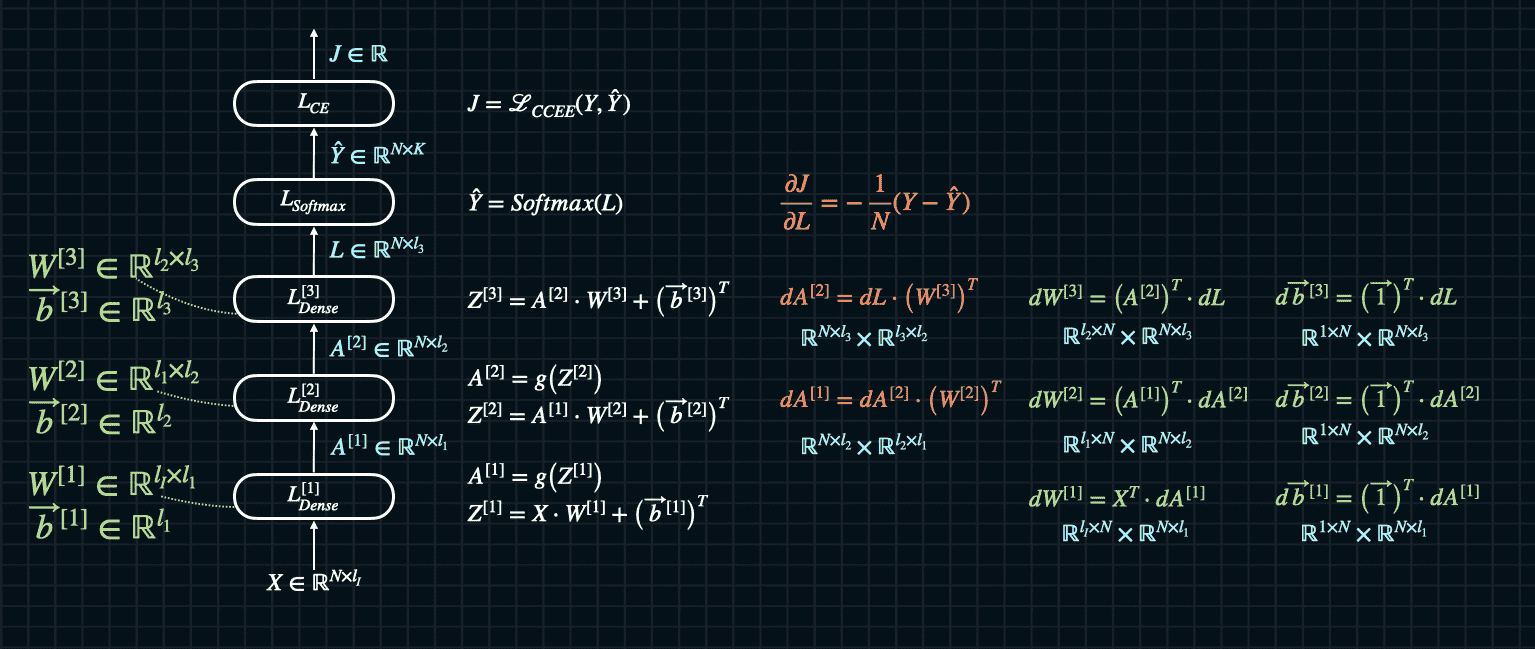 J ∈ ℝ
L_CE
J = ℒ_CCEE(Y, Ŷ)
Ŷ ∈ ℝ^{N×K}
L_Softmax
Ŷ = Softmax(L)
∂J/∂L = − 1/N (Y − Ŷ)
L ∈ ℝ^{N×l₃}
W^{[3]} ∈ ℝ^{l₂×l₃}
b⃗^{[3]} ∈ ℝ^{l₃}
L_Dense^{[3]}
Z^{[3]} = A^{[2]} · W^{[3]} + (b⃗^{[3]})^T
dA^{[2]} = dL · (W^{[3]})^T
ℝ^{N×l₃} × ℝ^{l₃×l₂}
dW^{[3]} = (A^{[2]})^T · dL
ℝ^{l₂×N} × ℝ^{N×l₃}
db⃗^{[3]} = (1⃗)^T · dL
ℝ^{1×N} × ℝ^{N×l₃}
A^{[2]} ∈ ℝ^{N×l₂}
W^{[2]} ∈ ℝ^{l₁×l₂}
b⃗^{[2]} ∈ ℝ^{l₂}
L_Dense^{[2]}
A^{[2]} = g(Z^{[2]})
Z^{[2]} = A^{[1]} · W^{[2]} + (b⃗^{[2]})^T
dA^{[1]} = dA^{[2]} · (W^{[2]})^T
ℝ^{N×l₂} × ℝ^{l₂×l₁}
dW^{[2]} = (A^{[1]})^T · dA^{[2]}
ℝ^{l₁×N} × ℝ^{N×l₂}
db⃗^{[2]} = (1⃗)^T · dA^{[2]}
ℝ^{1×N} × ℝ^{N×l₂}
A^{[1]} ∈ ℝ^{N×l₁}
W^{[1]} ∈ ℝ^{l_I×l₁}
b⃗^{[1]} ∈ ℝ^{l₁}
L_Dense^{[1]}
A^{[1]} = g(Z^{[1]})
Z^{[1]} = X · W^{[1]} + (b⃗^{[1]})^T
dW^{[1]} = X^T · dA^{[1]}
ℝ^{l_I×N} × ℝ^{N×l₁}
db⃗^{[1]} = (1⃗)^T · dA^{[1]}
ℝ^{1×N} × ℝ^{N×l₁}
X ∈ ℝ^{N×l_I}